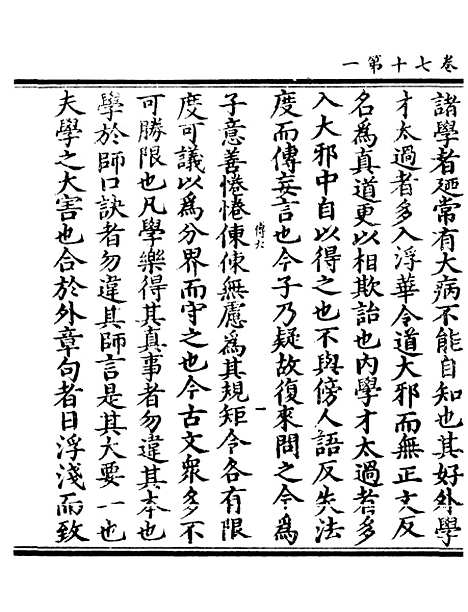 卷七十第一
諸學者廼常有大病不能自知也其好外學
才太過者多入浮華令道大邪而無正文反
名為真道更以相欺詒也內學才太過者多
入大邪中自以得之也不與傍人語反失法
度而傳妄言也今子乃疑故復來問之今為
傅六
一
子意善惓惓悚悚無慮為其規矩令各有限
度可議以為分界而守之也今古文衆多不
可勝限也凡學樂得其真事者勿違其本也
學於師口訣者勿違其師言是其大要一也
夫學之大害也合於外章句者日浮淺而致